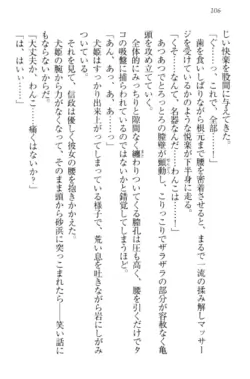 106
じい快楽を股間に与えてくる。
「くっ、これで、全部……！」
歯を食いしばりながら根元まで腰を密着させると、まるで一流の揉み解しマッサー
ジを受けているかのような悦楽が下半身に走る。
「くそ……なんて、名器なんだ……わんこは……っ」
あつあつでとろとろの膣壁が顫動し、こりっこりでザラザラの部分が容赦なく亀
頭を攻め立ててくる。
全体的にみっちりと隙間なく纏わりついてくる膣孔は圧も高く、腰を引くだけでタ
コの吸盤に捕られているのではないかと錯覚してしまうほど。
「あんっ、あっ、あぁ……っ」
犬姫はすっかり出来上がってしまっている様子で、荒い息を吐きながら岩にしがみ
ついている。
犬姫の腕から力が抜けて、そのまま頭から砂浜に突っこまれたら――笑い話に
もならないからだ。信政は優しく彼女の腰を抱きかかえた。
「大丈夫か、わんこ……痛くはないか？」
「は、はい……」